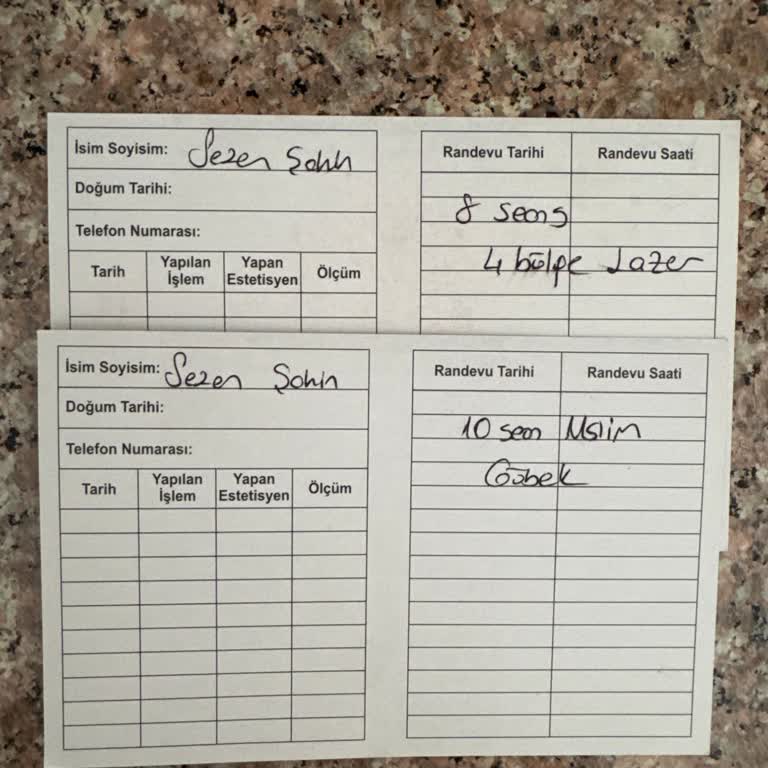 İsim Soyisim: Sezen Şahin
Doğum Tarihi:
Telefon Numarası:
Tarih Yapılan İşlem Yapan Estetisyen Ölçüm
Randevu Tarihi Randevu Saati
8 seans
4 bölge Lazer
İsim Soyisim: Sezen Şahin
Doğum Tarihi:
Telefon Numarası:
Tarih Yapılan İşlem Yapan Estetisyen Ölçüm
Randevu Tarihi Randevu Saati
10 sean
Göbek